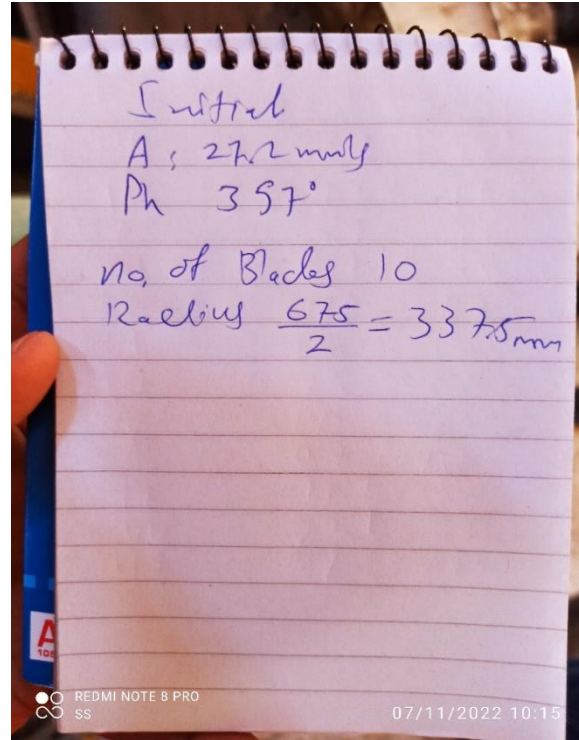 Initial
A: 27.2 mm/s
Ph 357°
no. of Blades 10
Radius 675/2 = 337.5mm
A
REDMI NOTE 8 PRO
SS
07/11/2022 10:15